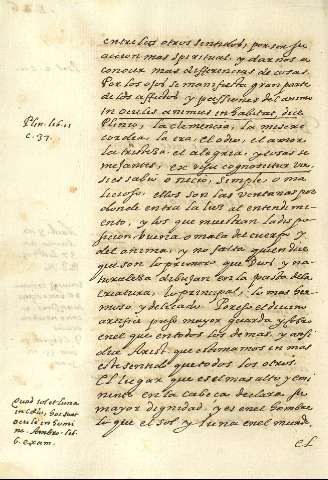 entre los otros sentidos, por ser su
accion mas spiritual, y dar nos a
conocer mas differencias de cosas.
Por los ojos se manifiesta gran parte
de los affectos y passiones del animo
in oculis animus inhabitat, dice
Plin. lib. 11
c. 37.
Plinio, la clemencia, la miseri
cordia, la ira, el odio, el amor
la tristeza el alegria, y cosas se
mejantes, ex visu cognoscitur vir,
si es sabio o necio, simple, o ma
licioso, ellos son las ventanas por
donde entra la luz al entendimi
ento, y los que muestran la dis
posicion buena o mala del cuerpo y
del anima, y no falta quien dice
que son lo primero que Dios y na
turaleza dibujan en la pasta de la
creatura, lo principal, lo mas her
moso y delicado. Por esso el divino
artifice puso mayor guarda y
en el que en todos los demas, y assi
dice Arist. que estimamos en mas
este sentido que todos los otros.
El lugar que es el mas alto y emi
nente en la cabeça declara su
mayor dignidad, y es en el hombre
lo que el sol y luna en el mundo.
Quod sol et luna
in cælo, hoc sunt
oculi in homi
ne. Ambro. lib.
6. exam.
el